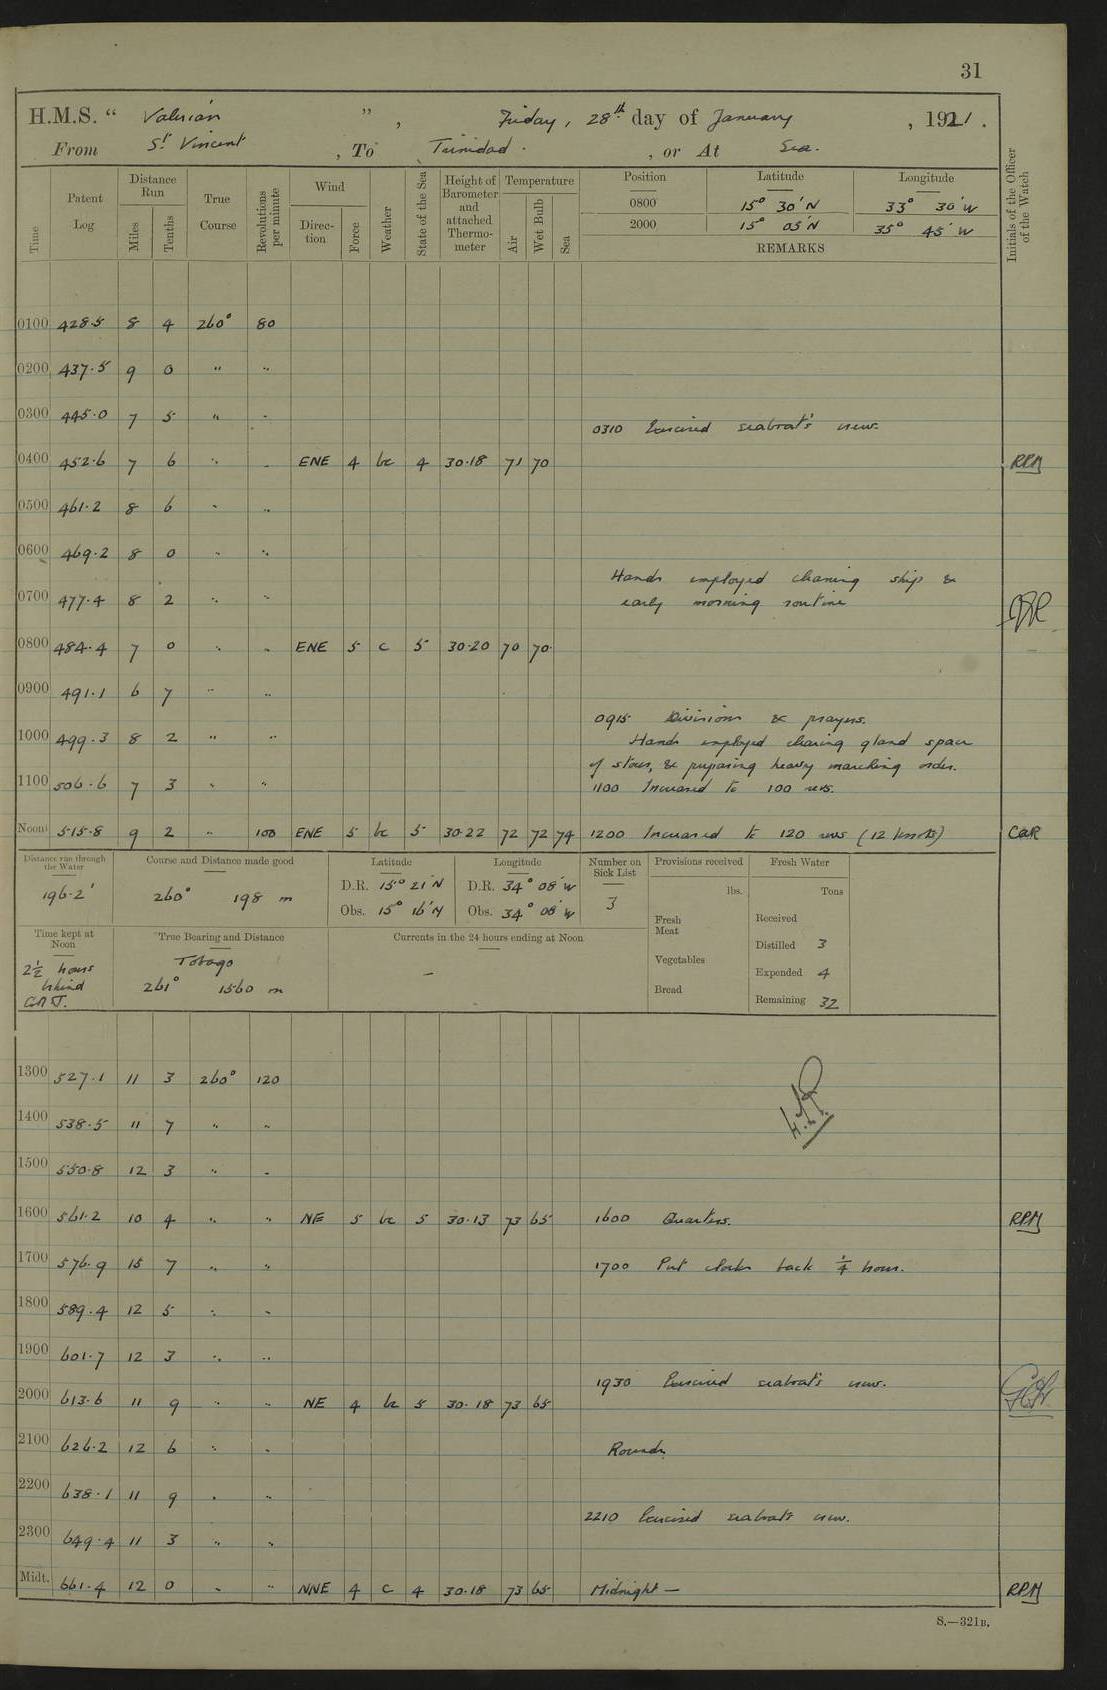 31
H.M.S. " Valerian ", Friday, 28th day of January, 1921.
From St Vincent, To Trinidad, or At Sea.
Time
Patent Log
Distance Run
Miles
Tenths
True Course
Revolutions per minute
Wind
Direction
Force
Weather
State of the Sea
Height of Barometer and attached Thermometer
Temperature
Air
Wet Bulb
Sea
Position Latitude Longitude
0800 15° 30' N 33° 30' W
2000 15° 05' N 35° 45' W
REMARKS
Initials of the Officer of the Watch
0100 428.5 8 4 260° 80
0200 437.5 9 0 " "
0300 445.0 7 5 " "
0310 Exercised seaboat's crew.
0400 452.6 7 6 " " ENE 4 bc 4 30.18 71 70 RPM
0500 461.2 8 6 " "
0600 469.2 8 0 " "
Hands employed cleaning ship &
0700 477.4 8 2 " " early morning routine
0800 484.4 7 0 " " ENE 5 c 5 30.20 70 70
0900 491.1 6 7 " "
0915 Divisions & prayers.
1000 499.3 8 2 " " Hands employed clearing gland space
of stores, & preparing heavy marching order.
1100 506.6 7 3 " " 1100 Increased to 100 revs.
Noon 515.8 9 2 " 100 ENE 5 bc 5 30.22 72 72 74 1200 Increased to 120 revs (12 knots) CAR
Distance run through the Water
196.2'
Course and Distance made good
260° 198 m
Latitude
D.R. 15° 21' N
Obs. 15° 16' N
Longitude
D.R. 34° 08' W
Obs. 34° 08' W
Number on Sick List
3
Provisions received
lbs.
Fresh Meat
Vegetables
Bread
Fresh Water
Tons
Received
Distilled 3
Expended 4
Remaining 32
Time kept at Noon
2½ hours behind G.M.T.
True Bearing and Distance
Tobago
261° 1560 m
Currents in the 24 hours ending at Noon
—
1300 527.1 11 3 260° 120
1400 538.5 11 7 " "
1500 550.8 12 3 " "
1600 561.2 10 4 " " NE 5 bc 5 30.13 73 65 1600 Quarters. RPM
1700 576.9 15 7 " " 1700 Put clocks back ¼ hour.
1800 589.4 12 5 " "
1900 601.7 12 3 " "
1930 Exercised seaboat's crew.
2000 613.6 11 9 " " NE 4 bc 5 30.18 73 65
2100 626.2 12 6 " " Rounds
2200 638.1 11 9 " "
2210 Exercised seaboat's crew.
2300 649.4 11 3 " "
Midt. 661.4 12 0 " " NNE 4 c 4 30.18 73 65 Midnight — RPM
S.—321B.